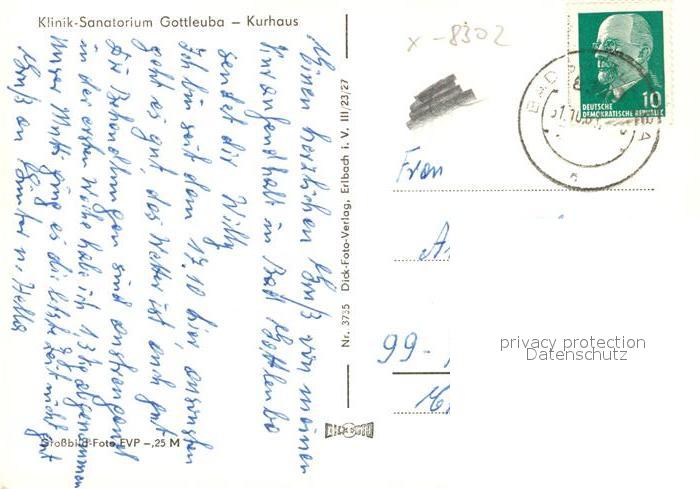 Klinik-Sanatorium Gottleuba – Kurhaus
Einen herzlichen Gruß von meinem
Kuraufenthalt in Bad Gottleuba
sendet dir Willy
Ich bin seit dem 17.10 hier, ansonsten
geht es gut, das Wetter ist auch gut
die Behandlungen sind anstrengend
in der ersten Woche habe ich 1,3 kg abgenommen
Unser Mutti ging es die letzte Zeit nicht gut
Gruß an Günter u. Hella
Großbild-Foto EVP –,25 M
Nr. 3735 Dick-Foto-Verlag, Erlbach i. V. III/23/27
x-8302
DEUTSCHE
DEMOKRATISCHE REPUBLIK
10
BAD
Frau
99-
privacy protection
Datenschutz